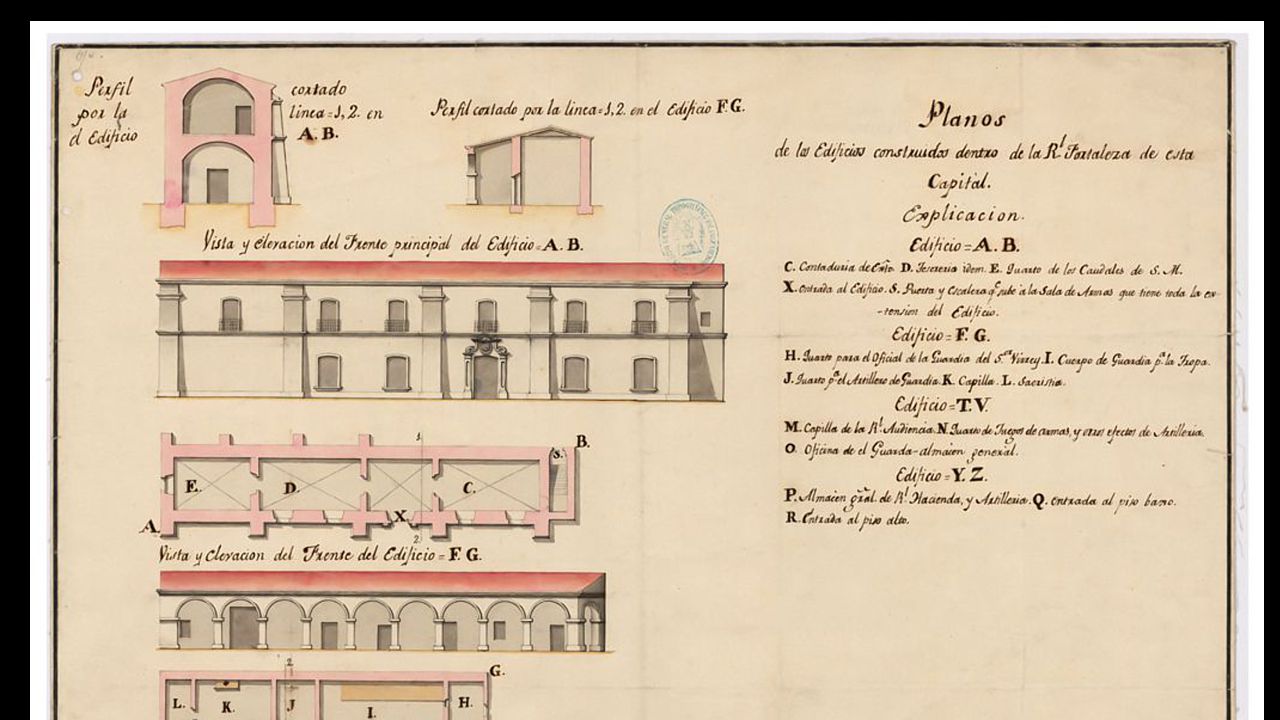 Perfil cortado
por la linea=1,2. en
el Edificio A.B.
Perfil cortado por la linea=1,2. en el Edificio F.G.
Vista y elevacion del Frente principal del Edificio=A.B.
1.
B.
S.
E. D. C.
X.
A.
2.
Vista y elevacion del Frente del Edificio=F.G.
2.
G.
L. K. J. I. H.
Planos
de los Edificios construidos dentro de la Rl Fortaleza de esta
Capital.
Explicacion.
Edificio=A.B.
C. Contaduria de Exto. D. Tesoreria idem. E. Quarto de los Caudales de S.M.
X. entrada al Edificio. S. Puerta y escalera qe sube à la Sala de Armas que tiene toda la ex-
-tension del Edificio.
Edificio=F.G.
H. Quarto para el Oficial de la Guardia del S.or Virrey. I. Cuerpo de Guardia pa. la Tropa.
J. Quarto pa. el Artillero de Guardia. K. Capilla. L. Sacristia.
Edificio=T.V.
M. Capilla de la Rl. Audiencia. N. Quarto de Juegos de armas, y otros efectos de Artilleria.
O. Oficina de el Guarda-almacen general.
Edificio=Y.Z.
P. Almacen gral. de Rl. Hacienda, y Artilleria. Q. entrada al piso baxo.
R. Entrada al piso alto.